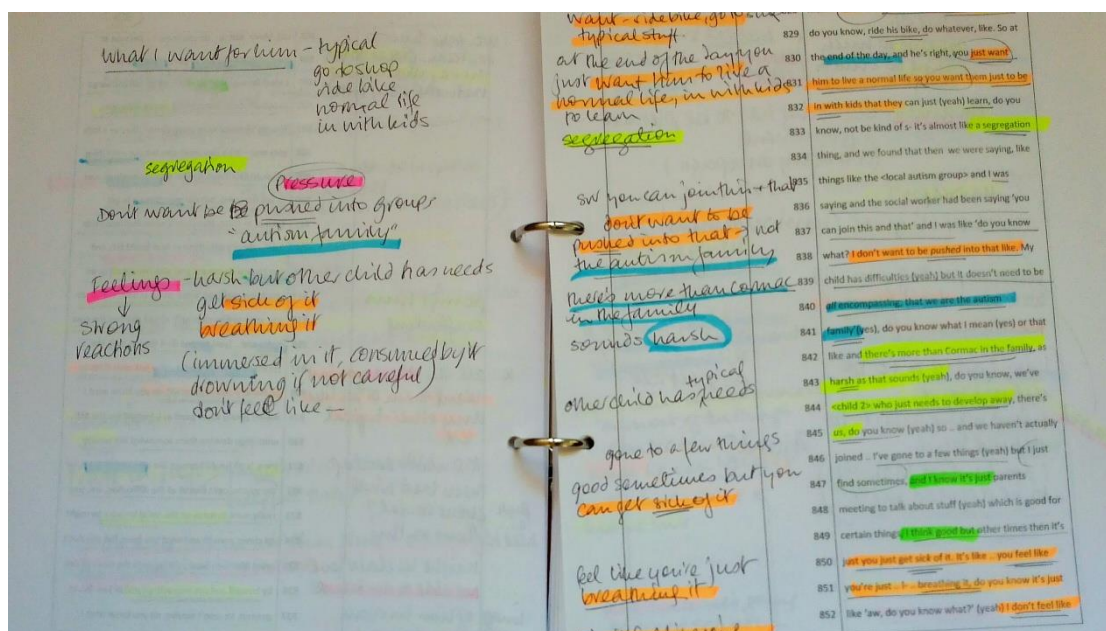 what I want for him - typical
go to shop
ride bike
normal life
in with kids
segregation
Pressure
Don't want be pushed into groups
"autism family"
Feelings - harsh - but other child has needs
get sick of it
breathing it
strong
reactions
(immersed in it, consumed by it
drowning if not careful)
don't feel like -
want - ride bike, go to
typical stuff
at the end of the day you
just want him to live a
normal life, in with kids
to learn
segregation
SW you can join this + that
don't want to be
pushed into that - not
the autism family
there's more than Cormac
in the family
sounds harsh
typical
other child has needs
gone to a few things
good sometimes but you
can get sick of it
feel like you're just
breathing it
829 do you know, ride his bike, do whatever, like. So at
830 the end of the day, and he's right, you just want
831 him to live a normal life so you want them just to be
832 in with kids that they can just (yeah) learn, do you
833 know, not be kind of s- it's almost like a segregation
834 thing, and we found that then we were saying, like
835 things like the <local autism group> and I was
836 saying and the social worker had been saying 'you
837 can join this and that' and I was like 'do you know
838 what? I don't want to be pushed into that like. My
839 child has difficulties (yeah) but it doesn't need to be
840 all encompassing; that we are the autism
841 family'(yes), do you know what I mean (yes) or that
842 like and there's more than Cormac in the family, as
843 harsh as that sounds (yeah), do you know, we've
844 <child 2> who just needs to develop away, there's
845 us, do you know (yeah) so .. and we haven't actually
846 joined .. I've gone to a few things (yeah) but I just
847 find sometimes, and I know it's just parents
848 meeting to talk about stuff (yeah) which is good for
849 certain things I think good but other times then it's
850 just you just get sick of it. It's like .. you feel like
851 you're just .. I- .. breathing it, do you know it's just
852 like 'aw, do you know what?' (yeah) I don't feel like